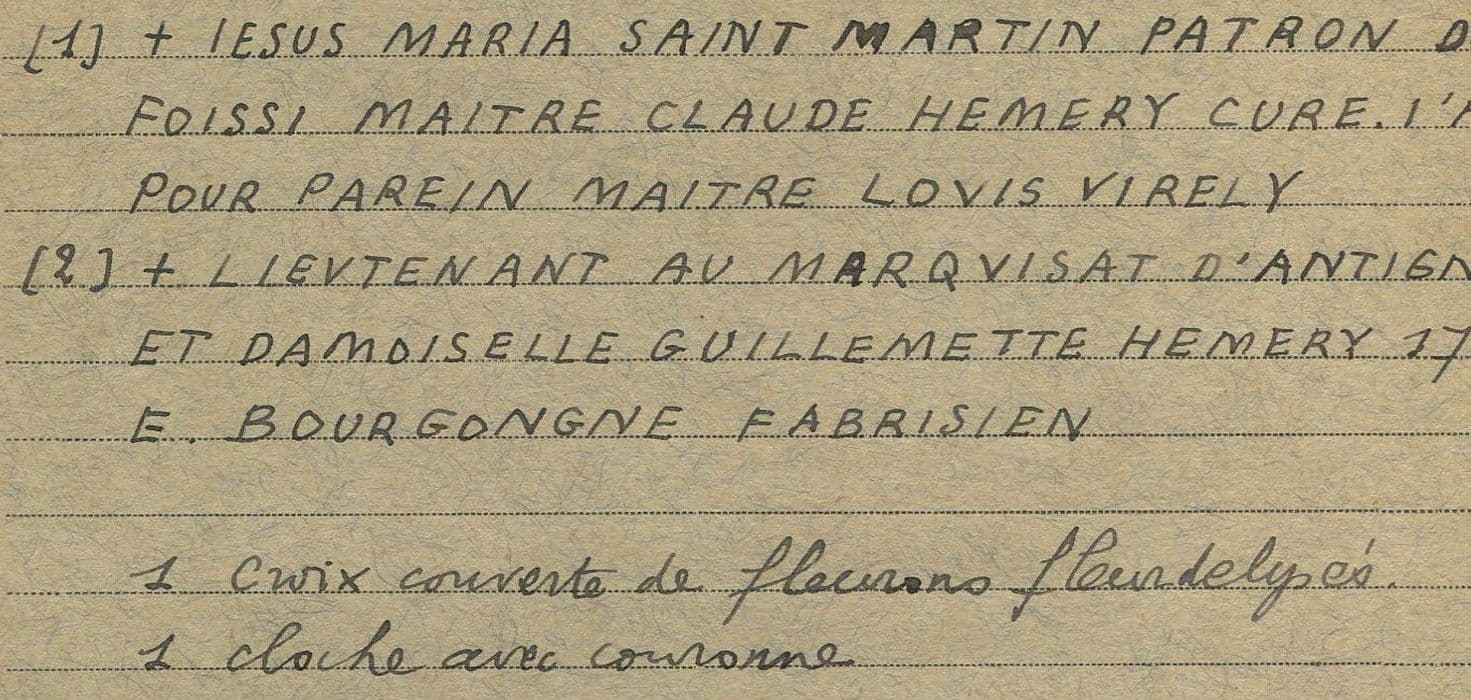 [1] + IESUS MARIA SAINT MARTIN PATRON D
FOISSI MAITRE CLAUDE HEMERY CURE. I'A
POUR PAREIN MAITRE LOVIS VIRELY
[2] + LIEVTENANT AU MARQVISAT D'ANTIGN
ET DAMOISELLE GUILLEMETTE HEMERY 17
E. BOURGONGNE FABRISIEN
1 Croix couverte de fleurons fleurdelysés.
1 cloche avec couronne